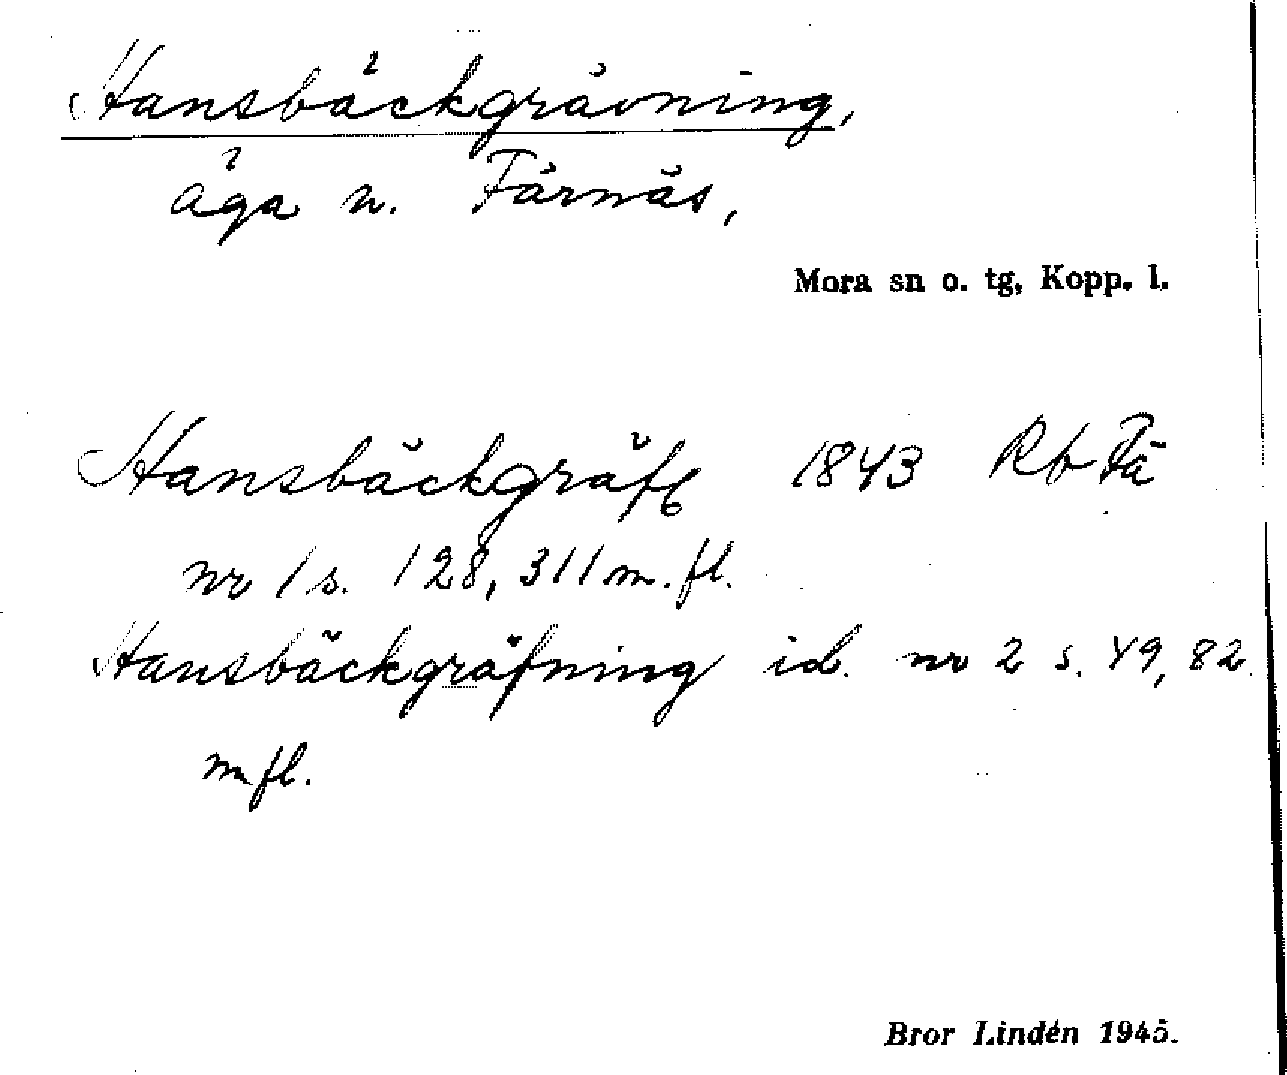 Hansbäckgrävning,
äga n. Färnäs,
Mora sn o. tg, Kopp. l.
Hansbäckgräfg 1843 Rb Fä
nr 1 s. 128, 311 m. fl.
Hansbäckgräfning id. nr 2 s. 49, 82
m fl.
Bror Lindén 1945.